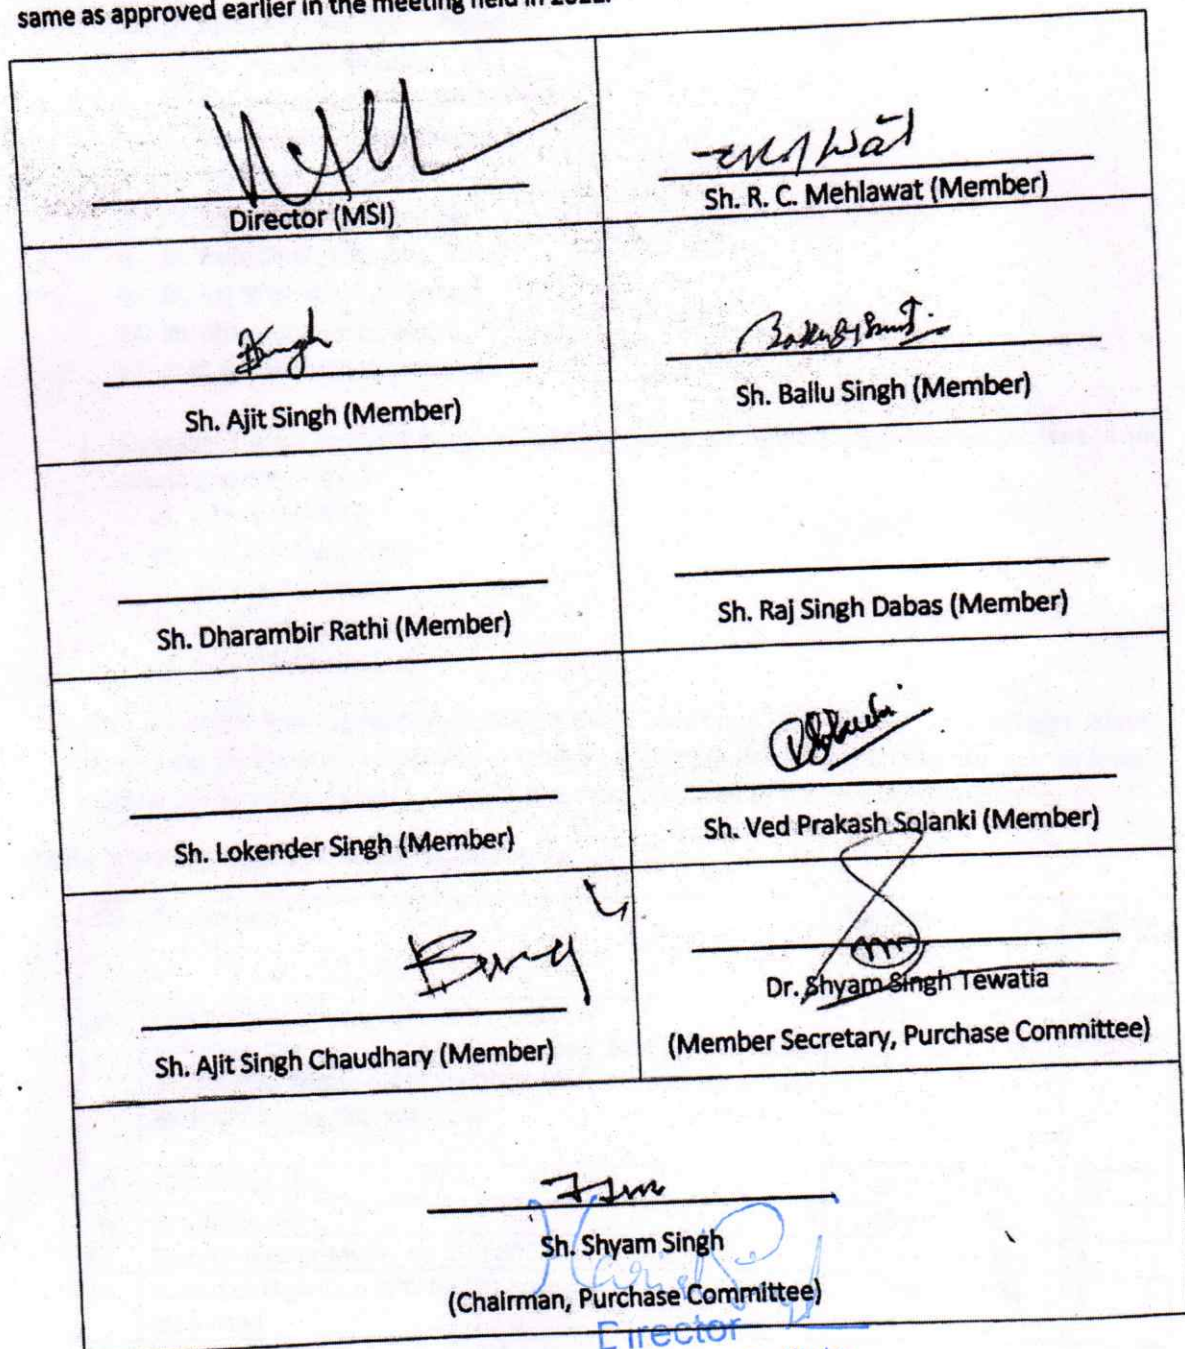 same as approved earlier in the meeting held in
Director (MSI)
Sh. R. C. Mehlawat (Member)
Sh. Ajit Singh (Member)
Sh. Ballu Singh (Member)
Sh. Dharambir Rathi (Member)
Sh. Raj Singh Dabas (Member)
Sh. Lokender Singh (Member)
Sh. Ved Prakash Solanki (Member)
Sh. Ajit Singh Chaudhary (Member)
Dr. Shyam Singh Tewatia
(Member Secretary, Purchase Committee)
Sh. Shyam Singh
(Chairman, Purchase Committee)
Director